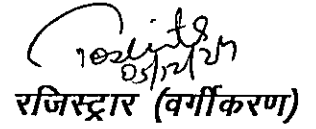 05/12/24
रजिस्ट्रार (वर्गीकरण)